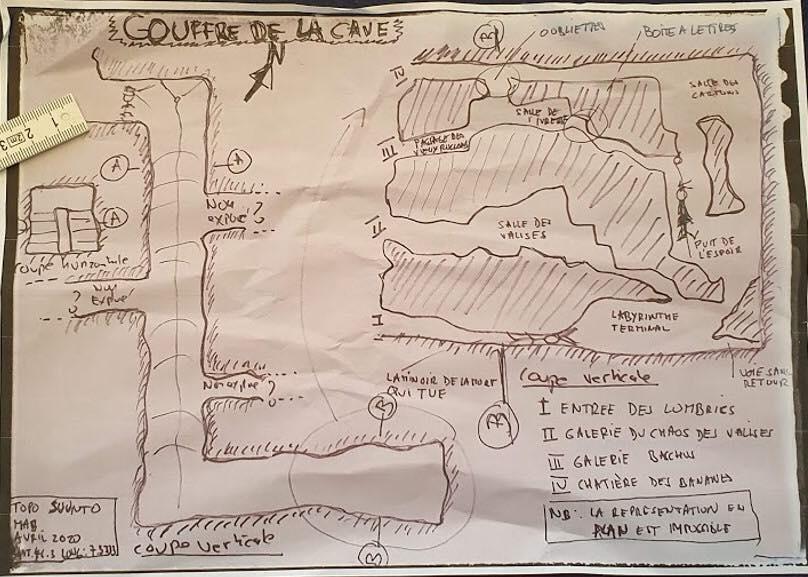 GOUFFRE DE LA CAVE
N
B
OUBLIETTES
BOITE A LETTRES
IV
SALLE DES
CARTONS
SALLE DE
L'IVRESSE
PASSAGE DES
III
A
A
A
NON
EXPLORÉ ?
II
SALLE DES
VALISES
PUIT DE
L'ESPOIR
COUPE HORIZONTALE
NON
EXPLORÉ
?
I
LABYRINTHE
TERMINAL
VOIE SANS
RETOUR
NON EXPLORÉ ?
LAMINOIR DE LA MORT
QUI TUE
B
B
COUPE VERTICALE
I ENTREE DES LOMBRICS
II GALERIE DU CHAOS DES VALISES
III GALERIE BACCHUS
IV CHATIÈRE DES BANANES
NB: LA REPRÉSENTATION EN
PLAN EST IMPOSSIBLE
TOPO SUUNTO
MAB
AVRIL 2020
COUPE VERTICALE
B